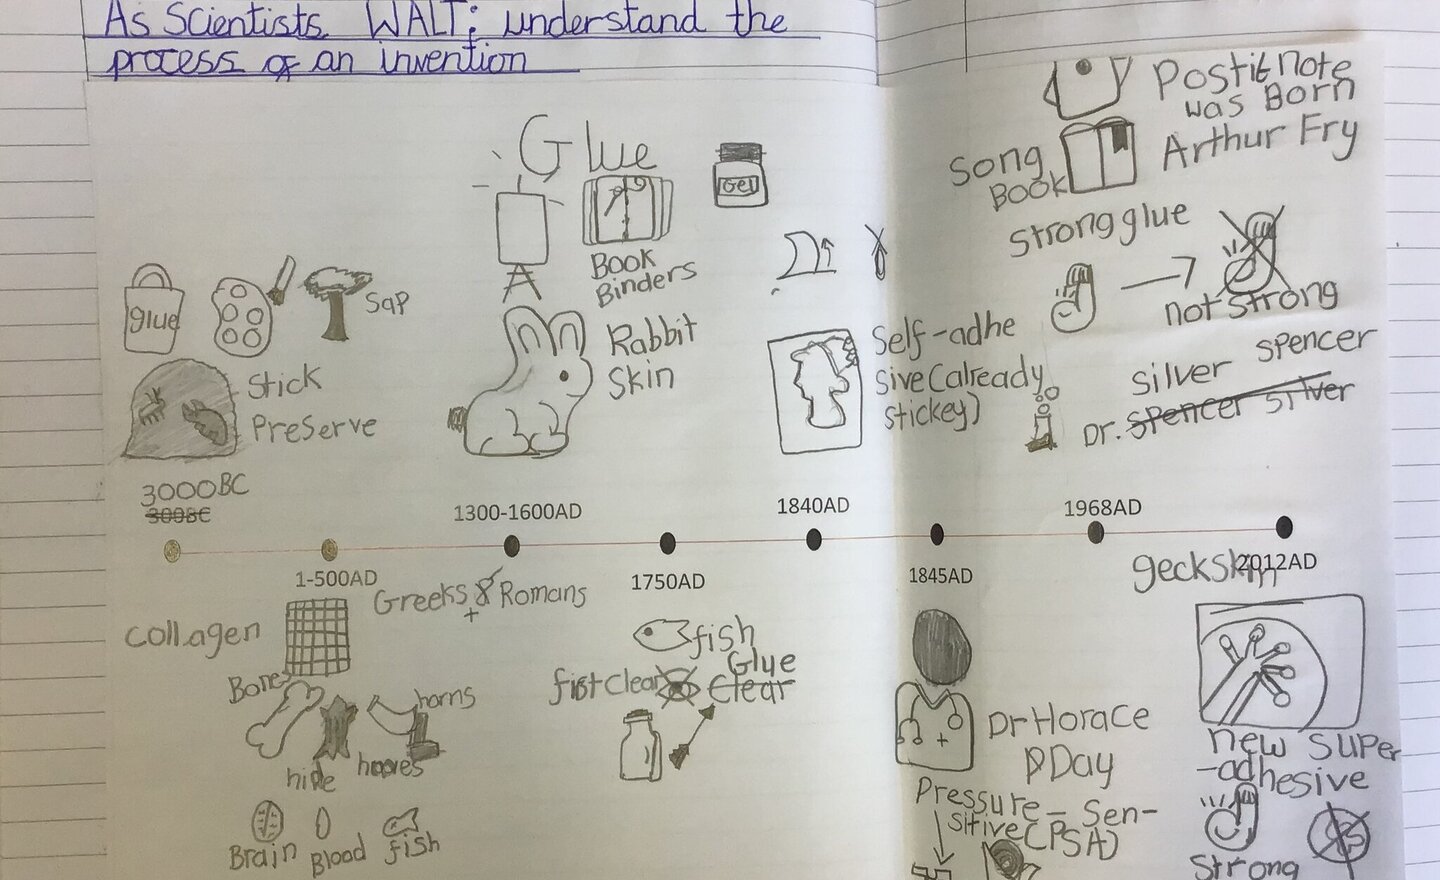 As Scientists WALT: understand the
process of an invention
Glue
Gel
Book
Binders
glue
Sap
Stick
Preserve
Rabbit
Skin
Self-adhe
sive (already
stickey)
Postit note
was Born
Arthur Fry
Song
Book
Strong glue
not Strong
Silver Spencer
Dr. Spencer Silver
3000BC
300BC
1300-1600AD
1840AD
1968AD
1-500AD
1750AD
1845AD
2012AD
Greeks & Romans
+
Collagen
Bones
horns
hide
hooves
Brain
Blood
fish
fish
Glue
fist Clear
Clear
Dr Horace
Day
Pressure - Sen-
sitive (PSA)
geckskin
new super
-adhesive
Strong